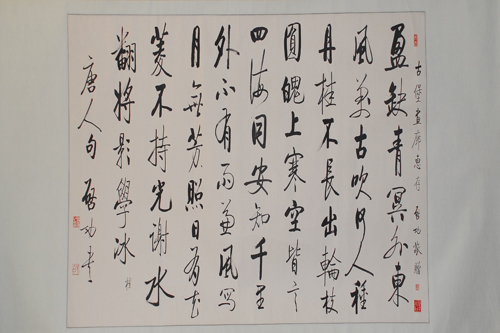 古堡畫廊惠存 啓功敬贈
盈缺青冥外東
風萬古吹何人種
丹桂不長出輪枝
圓魄上寒空皆言
四海同安知千里
外不有雨兼風寫
月無芳照日有花
菱不持光謝水
翻將影學冰 桂
唐人句 啓功書